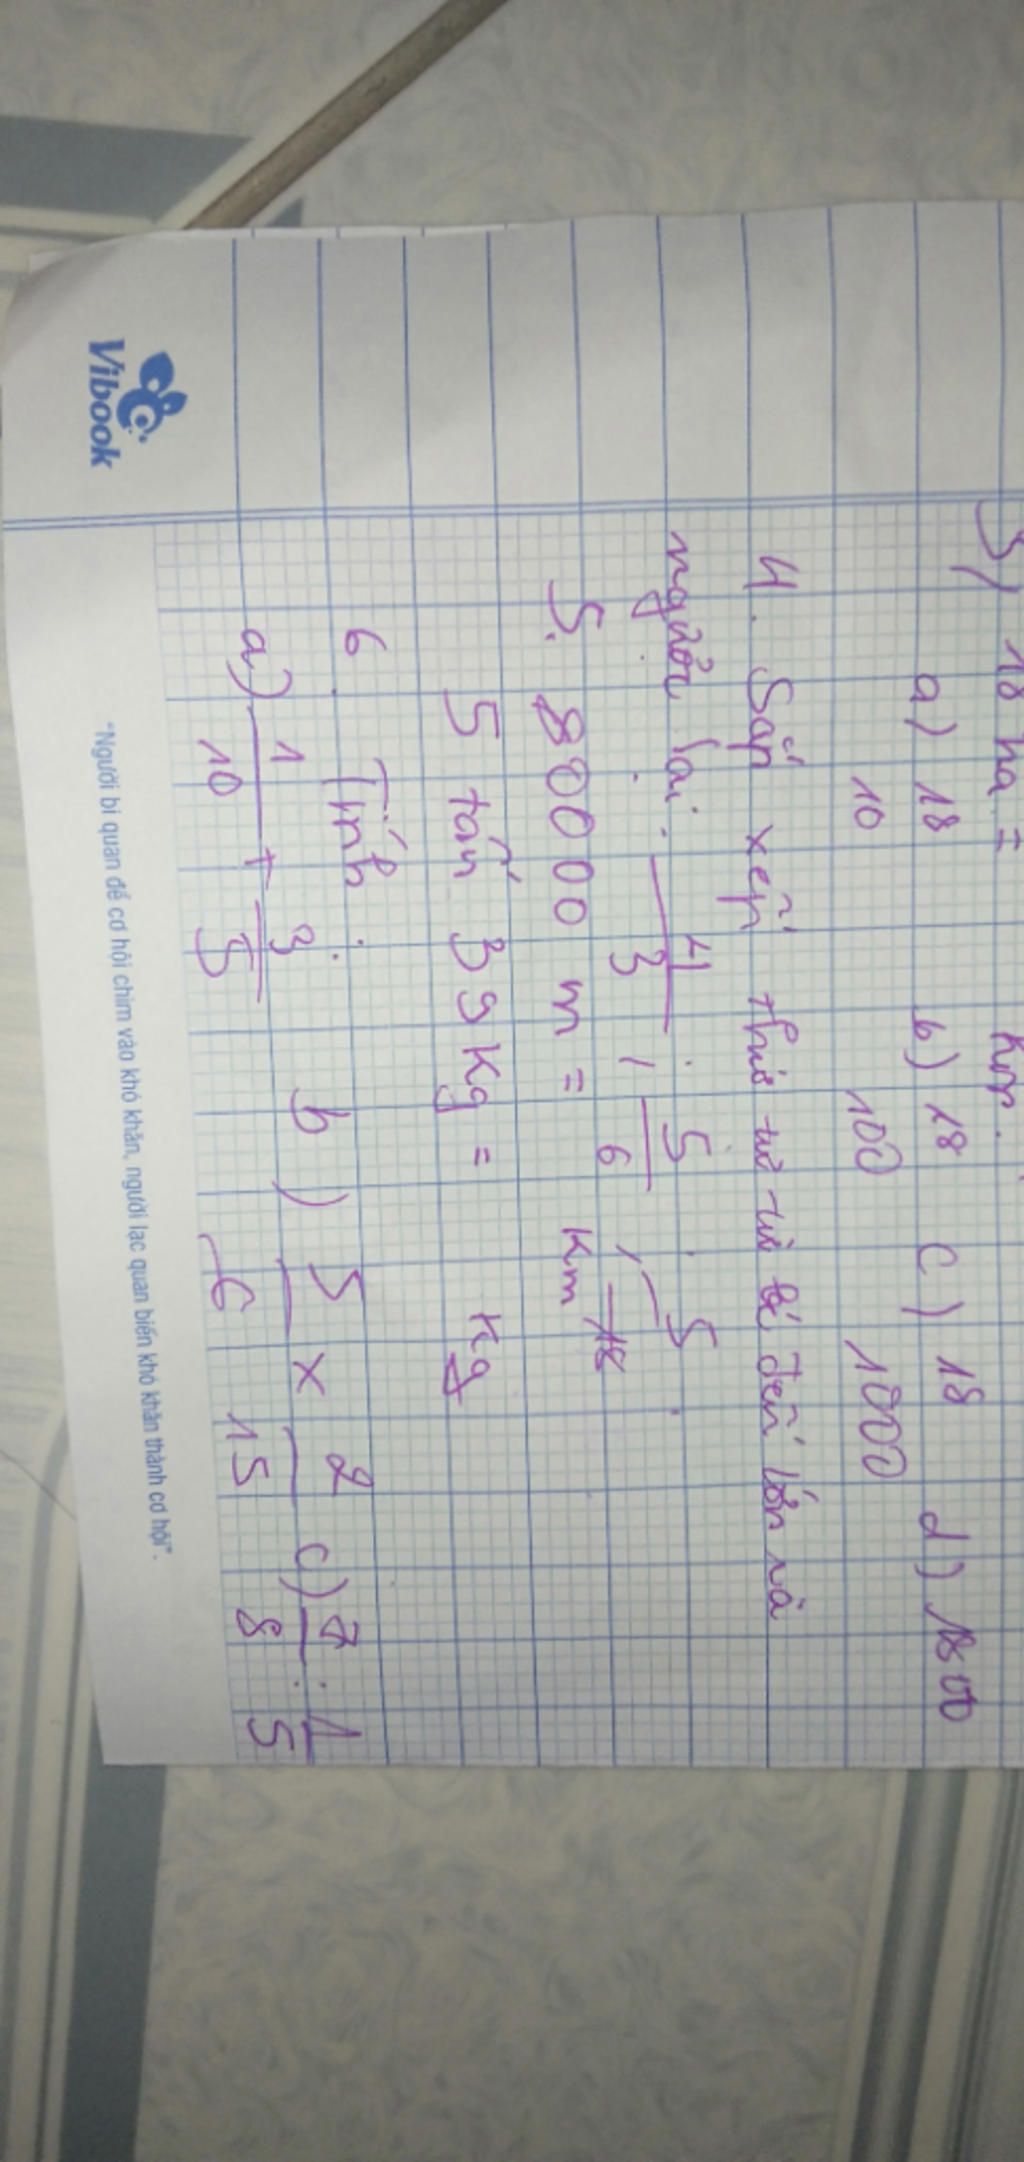 3, 18 ha = km
a) 18 b) 18 c) 18 d) 1800
10 100 1000
4. Sắp xếp thứ tự từ bé đến lớn và
ngược lại. 4/3, 5/6, 5/18
5. 8000 m = km
5 tấn 39 kg = kg
6. Tính.
a) 1/10 + 3/5 b) 5/6 x 2/15 c) 7/8 : 1/5
"Người bi quan để cơ hội chìm vào khó khăn, người lạc quan biến khó khăn thành cơ hội".
Vibook